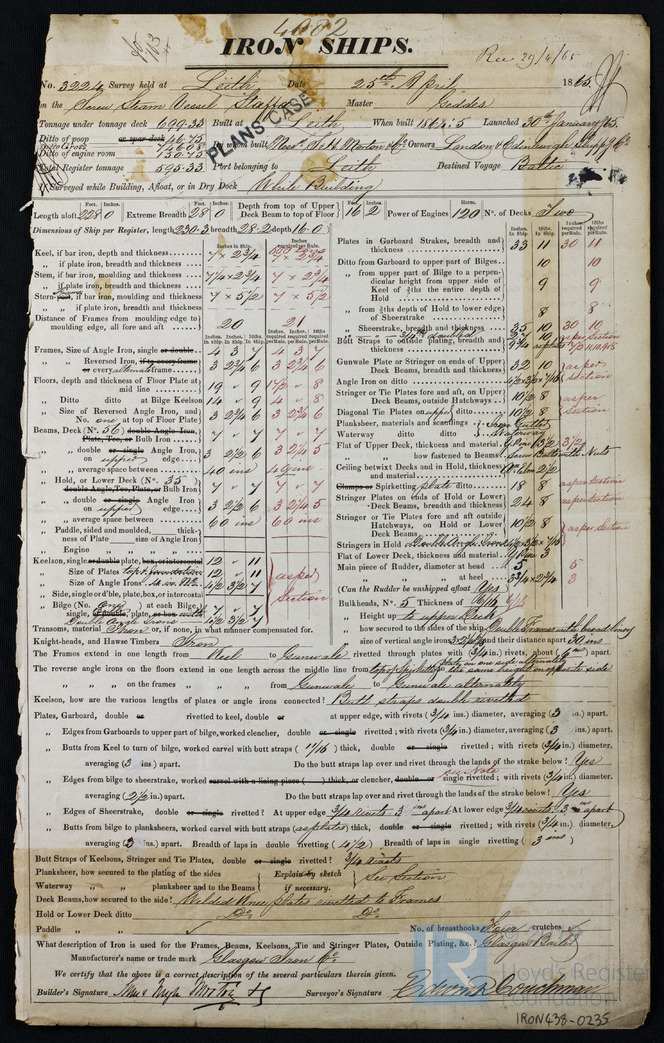 4082
IRON SHIPS.
Rec 29/4/65
No. 3224 Survey held at Leith Date 25th April 1865
on the Screw Steam Vessel Staffa Master Geddes
Tonnage under tonnage deck 699.33 Built at Leith When built 1864:5 Launched 30th January /65
Ditto of poop or spar deck 46.75
Ditto of engine room 150.75 By whom built Messrs. S & H Morton & Co Owners London & Edinburgh Shipp'g Co.
Total Register tonnage 595.33 Port belonging to Leith Destined Voyage Baltic
PLANS CASE
If Surveyed while Building, Afloat, or in Dry Dock While Building
Length aloft 228 0 Extreme Breadth 28 0 Depth from top of Upper Deck Beam to top of Floor 16 2 Power of Engines 120 Horse. No. of Decks Two
Dimensions of Ship per Register, length 230.3 breadth 28.2 depth 16.0
Keel, if bar iron, depth and thickness 7 × 2 3/4
„ if plate iron, breadth and thickness
Stem, if bar iron, moulding and thickness 7 1/4 × 2 3/4 7 × 2 3/4
„ if plate iron, breadth and thickness
Stern-post, if bar iron, moulding and thickness 7 × 5 1/2 7 × 5 1/2
„ if plate iron, breadth and thickness
Distance of Frames from moulding edge to moulding edge, all fore and aft 20 21
Frames, Size of Angle Iron, single or double 4 3 7 4 3 7
„ Reversed Iron, if to every frame or every alternate frame 3 2 3/4 6 3 2 3/4 6
Floors, depth and thickness of Floor Plate at mid line 19 „ 9 17 1/2 „ 8
„ Ditto ditto at Bilge Keelson 14 „ 9 4 „ 8
„ Size of Reversed Angle Iron, and No. one at top of Floor Plate 3 2 3/4 6 3 2 3/4 6
Beams, Deck (No. 56) double Angle Iron, Plate, Tee, or Bulb Iron 7 „ 7 7 „ 7
„ double or single Angle Iron, on upper edge 3 2 1/2 6 3 2 3/4 5
„ average space between 40 ins 42 ins
„ Hold, or Lower Deck (No. 35) double Angle, Tee, Plate, or Bulb Iron 7 „ 7 7 „ 7
„ double or single Angle Iron, on upper edge 3 2 1/2 6 3 2 3/4 5
„ average space between 60 ins 60 ins
„ Paddle, sided and moulded, thickness of Plate size of Angle Iron
„ Engine „ „ „
Keelson, single or double plate, box, or intercostal 12 „ 11
„ Size of Plates 12 „ 11
„ Size of Angle Irons 4 1/2 3 1/2 7
„ Side, single or d'ble, plate, box, or intercostal
„ Bilge (No. One) at each Bilge, single, double, plate, or box 7 „ 7
Double Angle Irons 4 1/2 3 1/2 7
as per Section
Transoms, material Iron or, if none, in what manner compensated for.
Knight-heads, and Hawse Timbers Iron
Plates in Garboard Strakes, breadth and thickness 33 11 30 11
Ditto from Garboard to upper part of Bilges 10 10
„ from upper part of Bilge to a perpendicular height from upper side of Keel of 3/5ths the entire depth of Hold 9 9
„ from 3/5ths depth of Hold to lower edge of Sheerstrake 8 8
„ Sheerstrake, breadth and thickness 35 10 30 10
Butt Straps to outside plating, breadth and thickness 9 3/4 as plates
Gunwale Plate or Stringer on ends of Upper Deck Beams, breadth and thickness 32 10 as per Section
Angle Iron on ditto
Stringer or Tie Plates fore and aft, on Upper Deck Beams, outside Hatchways 10 1/2 8 as per Section
Diagonal Tie Plates on upper ditto 10 1/2 8
Planksheer, materials and scantlings Iron Gutter
Waterway ditto ditto Waterway
Flat of Upper Deck, thickness and material Y. Pine 3 1/2 3 1/2
„ how fastened to Beams Screw Bolts with Nuts
Ceiling betwixt Decks and in Hold, thickness and material 2 1/2
Clamps or Spirketting plate ditto 18 8 as per section
Stringer Plates on ends of Hold or Lower Deck Beams, breadth and thickness 24 8 as per section
Stringer or Tie Plates fore and aft outside Hatchways, on Hold or Lower Deck Beams 10 1/2 8 as per Section
Stringers in Hold Double Angle Irons
Flat of Lower Deck, thickness and material Y. Pine 3
Main piece of Rudder, diameter at head 5 5
„ „ at heel 3 3/4 × 2 3/4 3
(Can the Rudder be unshipped afloat Yes)
Bulkheads, No. 5 Thickness of 6/16
„ Height up to upper Deck
„ how secured to the sides of the ship Double Frames with broad liners
„ size of vertical angle irons and their distance apart 30 ins
The Frames extend in one length from Keel to Gunwale riveted through plates with (3/4 in.) rivets, about (6 ins) apart.
The reverse angle irons on the floors extend in one length across the middle line from top of spirketting plate on one side alternately to the same height on opposite side
„ „ on the frames „ „ from Gunwale to Gunwale alternately
Keelson, how are the various lengths of plates or angle irons connected? Butt straps double rivetted
Plates, Garboard, double or rivetted to keel, double or at upper edge, with rivets (3/4 ins.) diameter, averaging (3 ins.) apart.
„ Edges from Garboards to upper part of bilge, worked clencher, double or single rivetted; with rivets (3/4 in.) diameter, averaging (3 ins.) apart.
„ Butts from Keel to turn of bilge, worked carvel with butt straps (11/16) thick, double or single rivetted; with rivets (3/4 in.) diameter, averaging (3 ins) apart. Do the butt straps lap over and rivet through the lands of the strake below? Yes
see Note
„ Edges from bilge to sheerstrake, worked carvel with a lining piece ( ) thick, or clencher, double or single rivetted; with rivets (3/4 in.) diameter, averaging (2 1/2 in.) apart. Do the butt straps lap over and rivet through the lands of the strake below? Yes
„ Edges of Sheerstrake, double or single rivetted? At upper edge 3/4 rivets 3 ins apart At lower edge 3/4 rivets 3 ins apart
„ Butts from bilge to planksheers, worked carvel with butt straps (as plates) thick, double or single rivetted; with rivets (3/4 in.) diameter, averaging (3 ins.) apart. Breadth of laps in double rivetting (4 1/2) Breadth of laps in single rivetting (3 ins)
Butt Straps of Keelsons, Stringer and Tie Plates, double or single rivetted? 3/4 rivets
Planksheer, how secured to the plating of the sides Explain by sketch See Section
Waterway „ „ planksheer and to the Beams if necessary.
Deck Beams, how secured to the side? Welded Knee plates rivetted to Frames
Hold or Lower Deck ditto Do. Do.
Paddle „ „ No. of breasthooks Four crutches ✓
What description of Iron is used for the Frames, Beams, Keelsons, Tie and Stringer Plates, Outside Plating, &c.? Glasgow Boiler
Manufacturer's name or trade mark Glasgow Iron Co.
We certify that the above is a correct description of the several particulars therein given.
Builder's Signature Surveyor's Signature Edwin R Couchman
LR Lloyd's Register Foundation
IRON438-0235